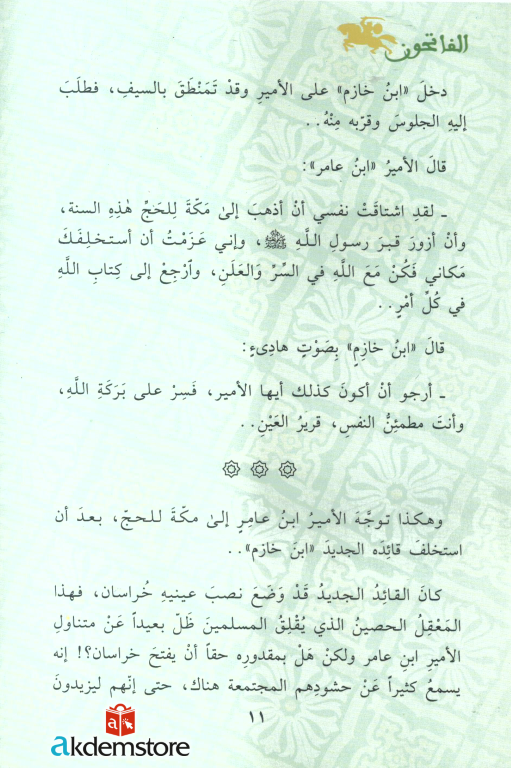 الفاتحون
دخلَ «ابنُ خازم» على الأميرِ وقدْ تَمَنْطَقَ بالسيفِ، فطلَبَ
إليهِ الجلوسَ وقرّبه مِنْهُ..
قالَ الأميرُ «ابنُ عامر»:
ـ لقدِ اشتاقَتْ نفسي أنْ أذهبَ إلىٰ مَكّةَ لِلحَجِّ هٰذِهِ السنة،
وأنْ أزورَ قبرَ رسولِ اللهِ ﷺ، وإني عَزَمْتُ أن أستخلِفَكَ
مكاني فَكُنْ مَعَ اللَّهِ في السِّرْ وَالعَلَنِ، وٱرْجِعْ إلى كِتابِ اللَّهِ
في كُلِّ أمْرٍ..
قالَ «ابنُ خازِمٍ» بِصَوْتٍ هادِىءٍ:
ـ أرجو أنْ أكونَ كذلك أيها الأمير، فَسِرْ على بَرَكَةِ اللَّهِ،
وأنتَ مطمئِنُّ النفسِ، قريرُ العَيْنِ..
وهكذا توجَّهَ الأميرُ ابنُ عامِرٍ إلىٰ مكّةَ للحجّ، بعدَ أن
استخلفَ قائدَه الجديدَ «ابنَ خازم»..
كانَ القائِدُ الجديدُ قَدْ وَضَعَ نصبَ عينيهِ خُراسان، فهذا
المَعْقِلُ الحصينُ الذي يُقْلِقُ المسلمينَ ظَلّ بعيداً عَنْ متناولِ
الأميرِ ابنِ عامر ولكنْ هَلْ بمقدورِه حقاً أنْ يفتحَ خراسان؟! إنه
يسمعُ كثيراً عَنْ حشودِهم المجتمعة هناك، حتى إنّهم ليزيدونَ
١١
akdemstore